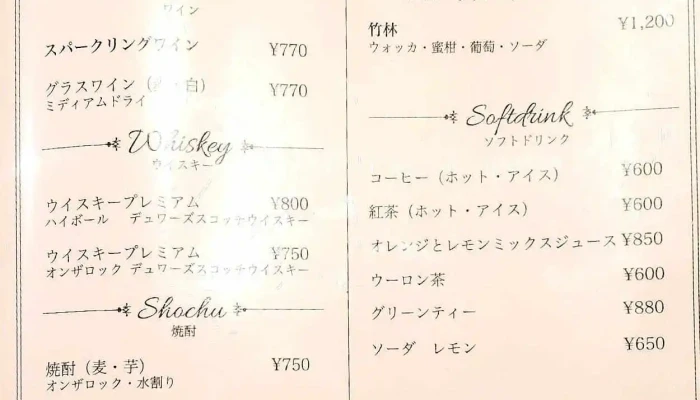 ワイン
スパークリングワイン ¥770
グラスワイン（ ・白） ¥770
ミディアムドライ
Whiskey
ウイスキー
ウイスキープレミアム ¥800
ハイボール デュワーズスコッチウイスキー
ウイスキープレミアム ¥750
オンザロック デュワーズスコッチウイスキー
Shochu
焼酎
焼酎（麦・芋） ¥750
オンザロック・水割り
竹林 ¥1,200
ウォッカ・蜜柑・葡萄・ソーダ
Softdrink
ソフトドリンク
コーヒー（ホット・アイス） ¥600
紅茶（ホット・アイス） ¥600
オレンジとレモンミックスジュース ¥850
ウーロン茶 ¥600
グリーンティー ¥880
ソーダ レモン ¥650